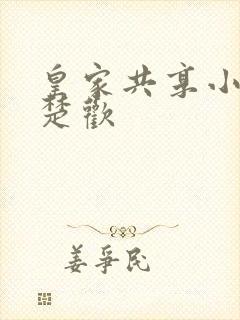 皇家共享小
楚歡
姜爭民